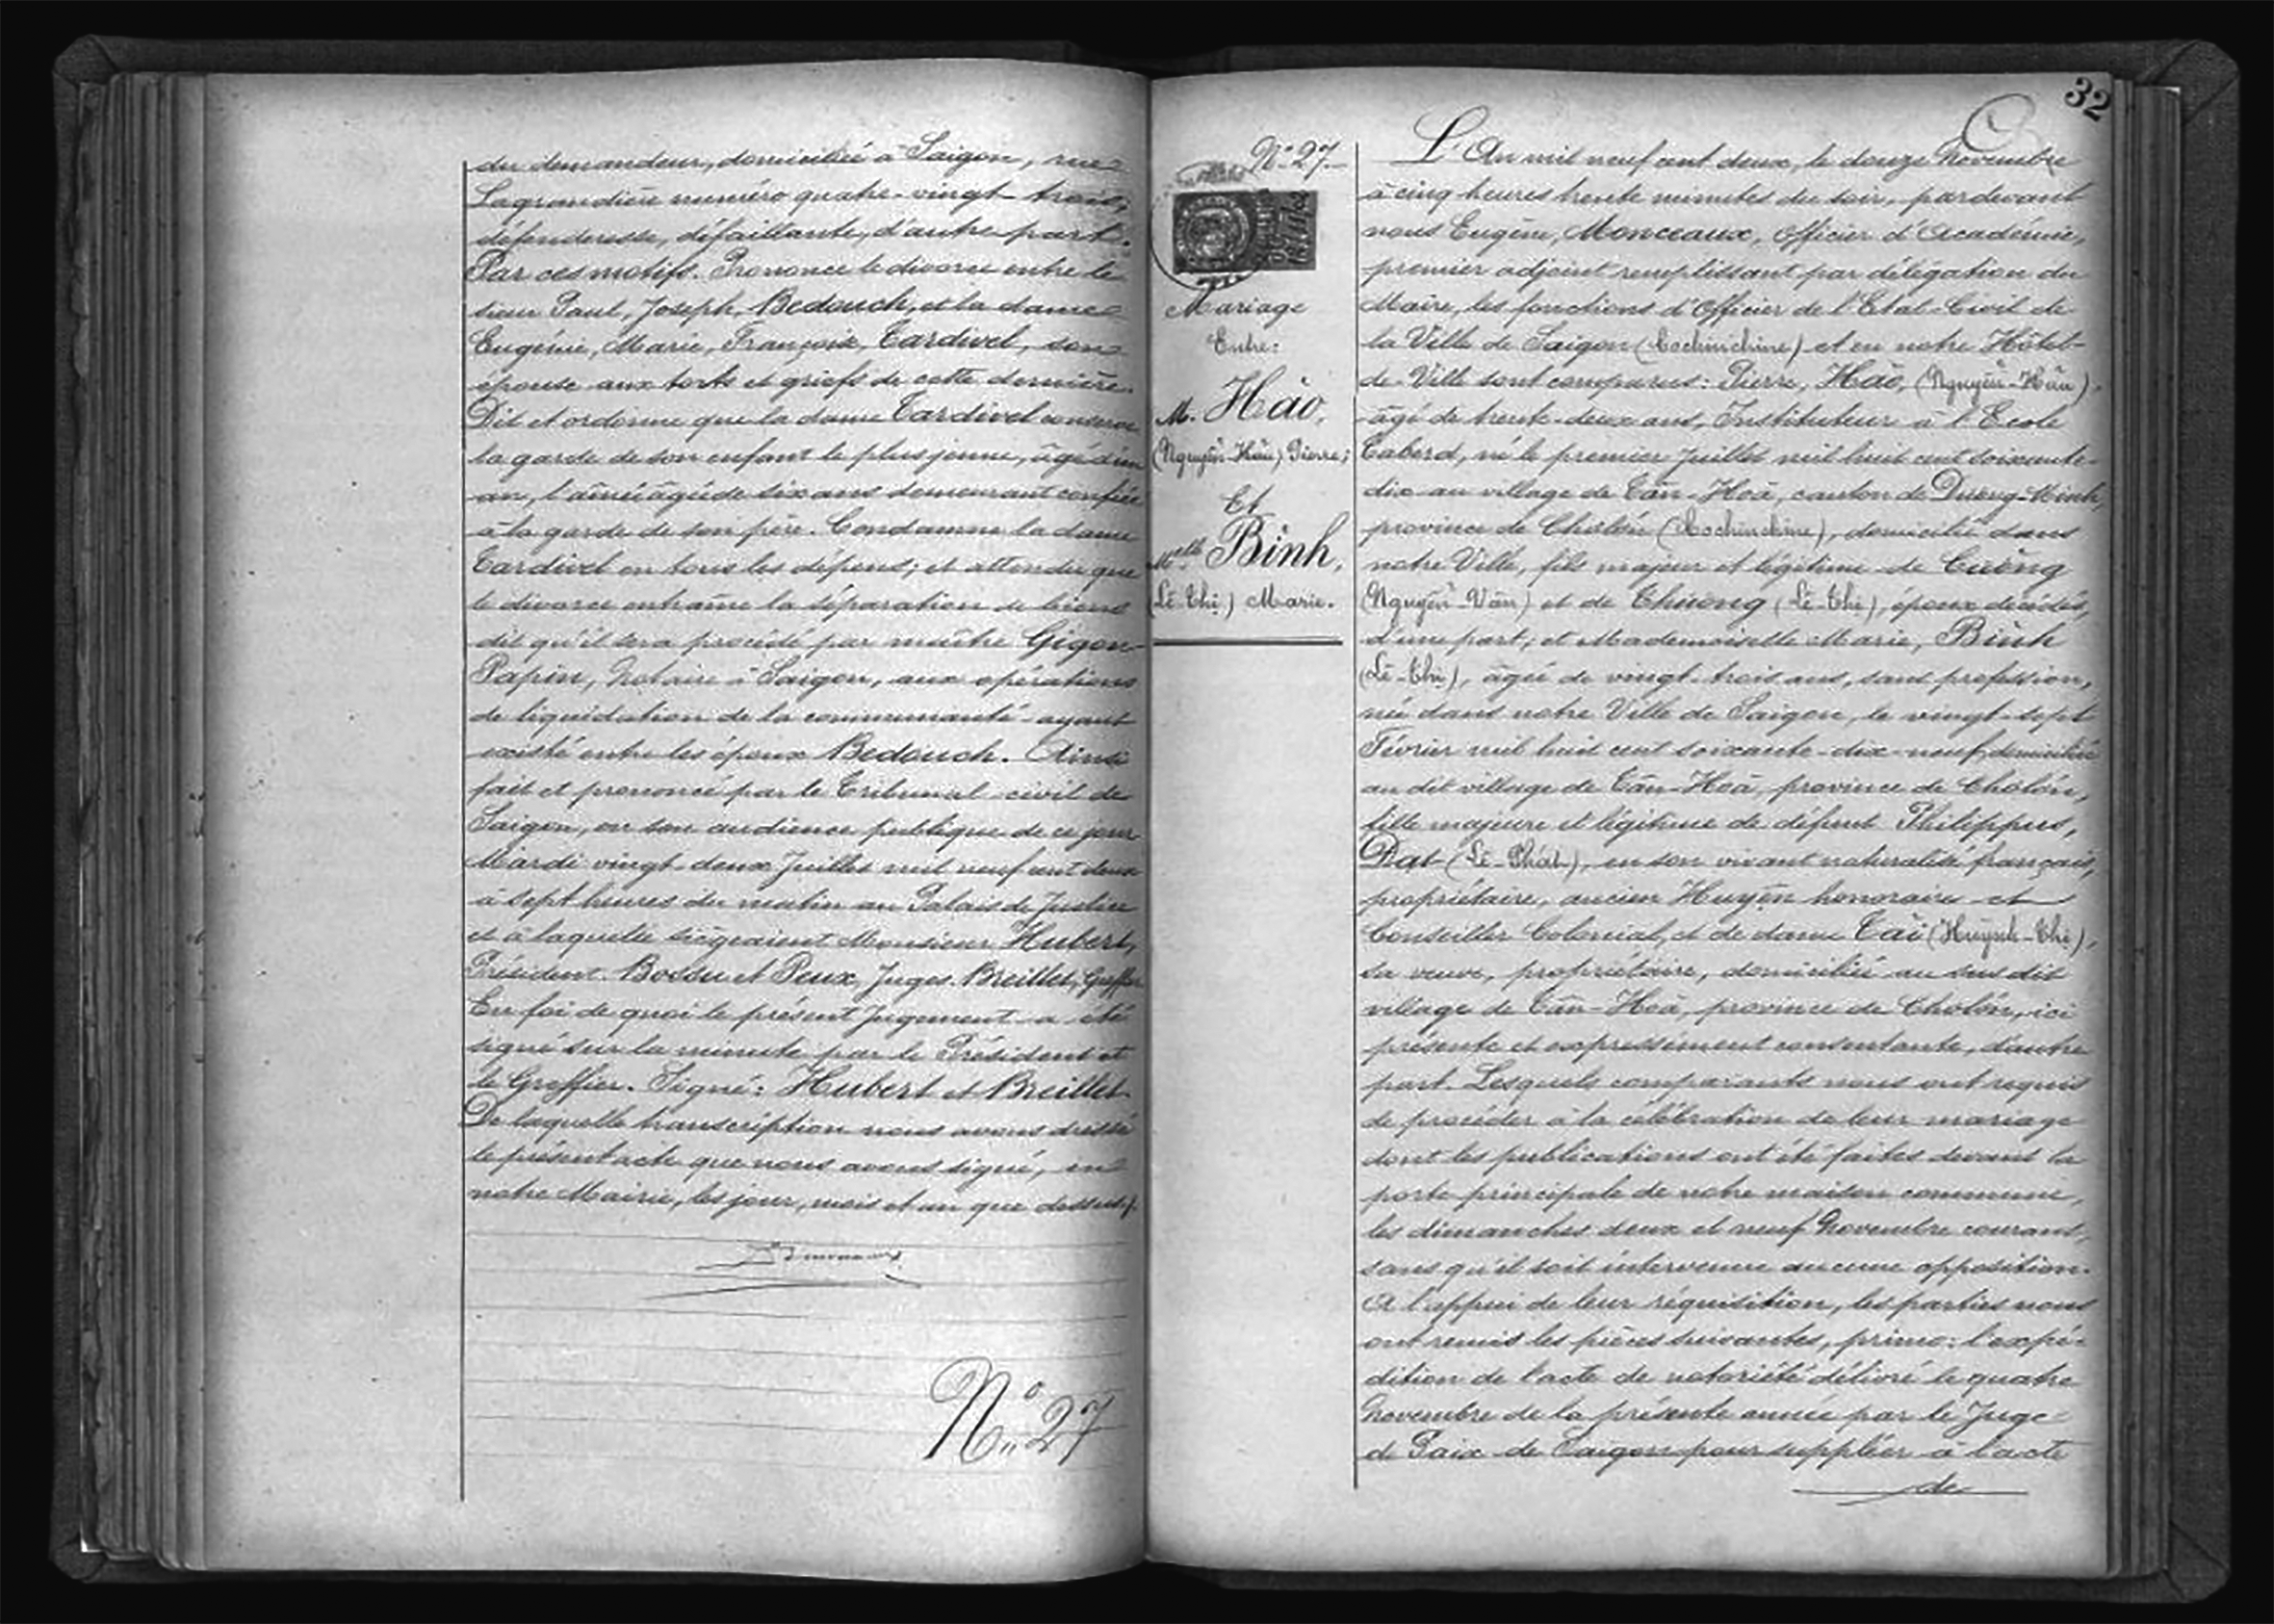 du demandeur, domiciliée à Saigon, rue
Lagrandière numéro quatre-vingt trois,
défenderesse, défaillante, d'autre part.
Par ces motifs. Prononce le divorce entre le
sieur Paul, Joseph, Bedouch, et la dame
Eugénie, Marie, Françoise, Tardivel, son
épouse aux torts et griefs de cette dernière.
Dit et ordonne que la dame Tardivel conserve
la garde de son enfant le plus jeune, âgé d'un
an, l'aîné âgé de six ans demeurant confié
à la garde de son père. Condamne la dame
Tardivel en tous les dépens; et attendu que
le divorce entraîne la séparation de biens
dit qu'il sera procédé par maître Gigon-
Papin, Notaire à Saigon, aux opérations
de liquidation de la communauté ayant
existé entre les époux Bedouch. Ainsi
fait et prononcé par le Tribunal civil de
Saigon, en son audience publique de ce jour
Mardi vingt-deux Juillet mil neuf cent deux
à sept heures du matin au Palais de Justice
et à laquelle siégeaient Monsieur Hubert,
Président. Bossu et Peux, Juges. Breillet, Greffier
En foi de quoi le présent Jugement a été
signé sur la minute par le Président et
le Greffier. Signé: Hubert et Breillet.
De laquelle transcription nous avons dressé
le présent acte que nous avons signé, en
notre Mairie, les jour, mois et an que dessus.
No 27
32
No 27
Mariage
Entre:
M. Hào,
(Nguyễn-Hữu) Pierre;
Et
Melle Binh,
(Lê-Thị) Marie.
L'An mil neuf cent deux, le douze Novembre
à cinq heures trente minutes du soir, pardevant
nous Eugène, Monceaux, Officier d'Académie,
premier adjoint remplissant par délégation du
Maire, les fonctions d'Officier de l'Etat-Civil de
la Ville de Saigon (Cochinchine) et en notre Hôtel-
de-Ville sont comparus: Pierre, Hào, (Nguyễn-Hữu),
âgé de trente-deux ans, Instituteur à l'Ecole
Taberd, né le premier Juillet mil huit cent soixante-
dix au village de Tân-Hoà, canton de Dương-Minh,
province de Cholón (Cochinchine), domicilié dans
notre Ville, fils majeur et légitime de Cường
(Nguyễn-Văn) et de Thương (Lê-Thị), époux décédés,
d'une part; et Mademoiselle Marie, Binh
(Lê-Thị), âgée de vingt-trois ans, sans profession,
née dans notre Ville de Saigon, le vingt-sept
Février mil huit cent soixante-dix-neuf, domiciliée
au dit village de Tân-Hoà, province de Cholón,
fille majeure et légitime de défunt Philippus,
Đạt (Lê-Phát), en son vivant naturalisé français,
propriétaire, ancien Huyện honoraire et
Conseiller Colonial, et de dame Tài (Huỳnh-Thị),
sa veuve, propriétaire, domiciliée au sus dit
village de Tân-Hoà, province de Cholón, ici
présente et expressément consentante, d'autre
part. Lesquels comparants nous ont requis
de procéder à la célébration de leur mariage
dont les publications ont été faites devant la
porte principale de notre maison commune,
les dimanches deux et neuf Novembre courant,
sans qu'il soit intervenue aucune opposition.
A l'appui de leur réquisition, les parties nous
ont remis les pièces suivantes, primo: l'expé-
dition de l'acte de notoriété délivré le quatre
Novembre de la présente année par le Juge
de Paix de Saigon pour suppléer à l'acte
de